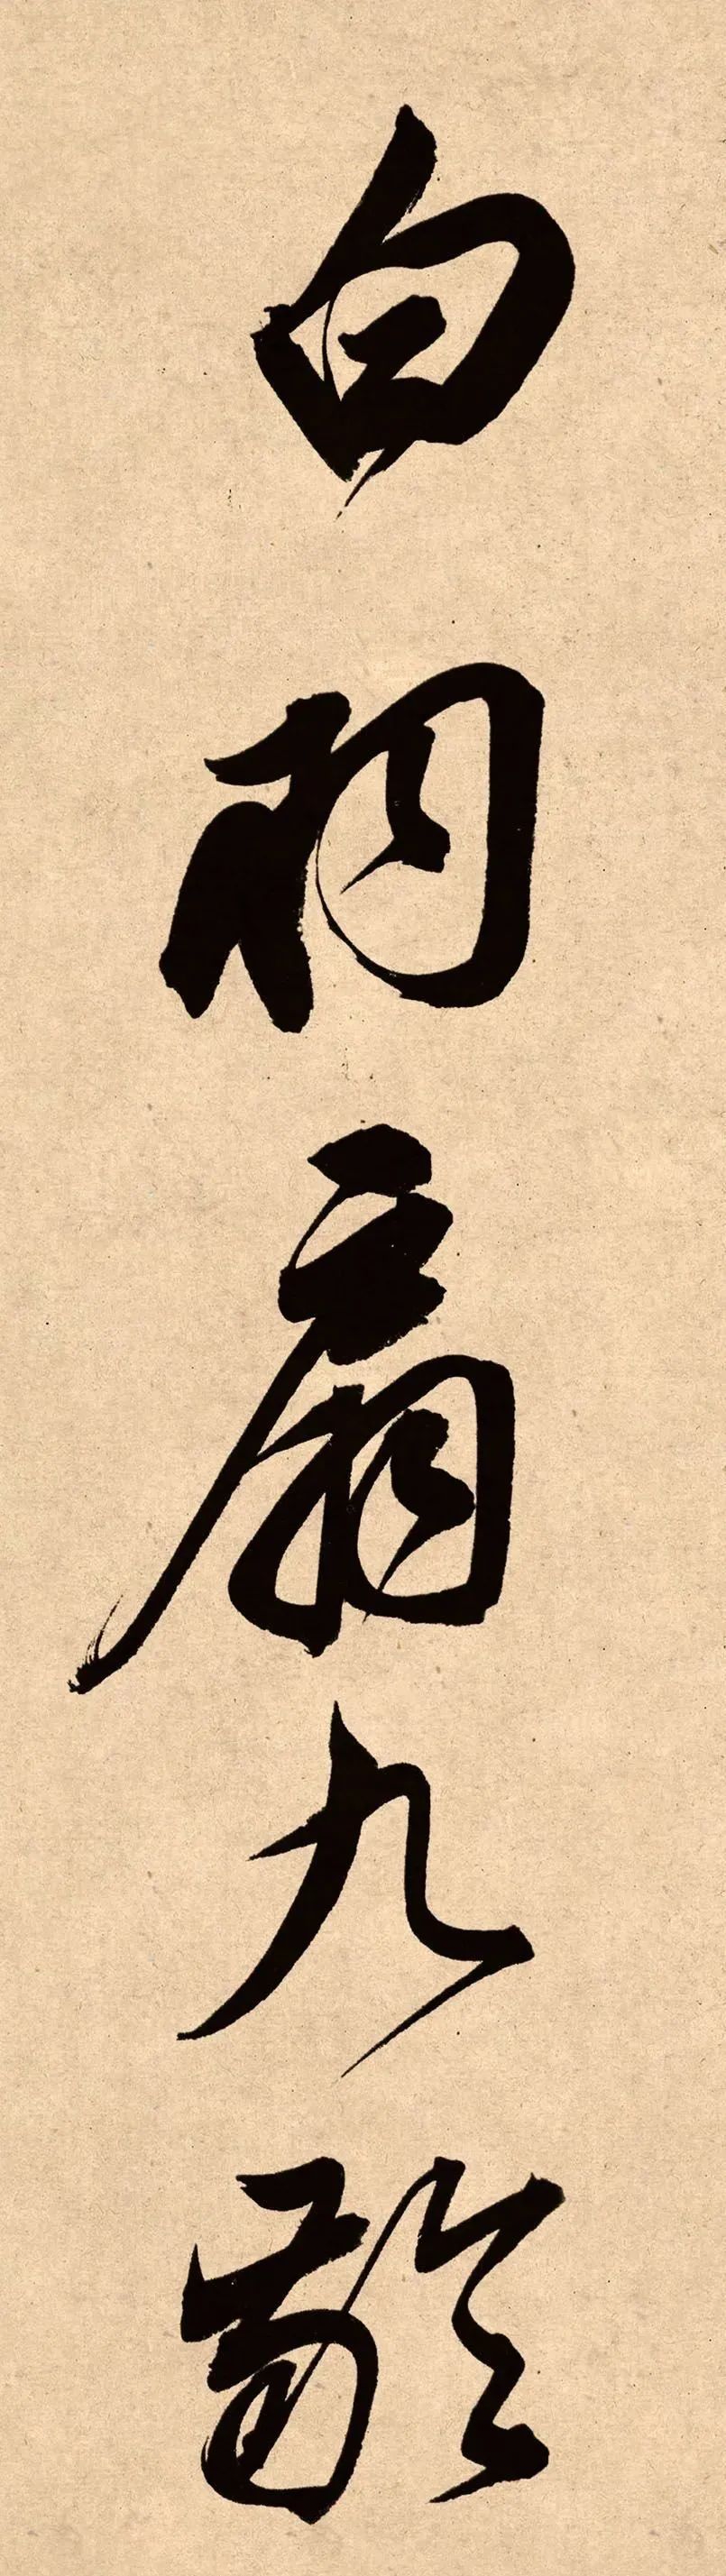 白羽扇九齡